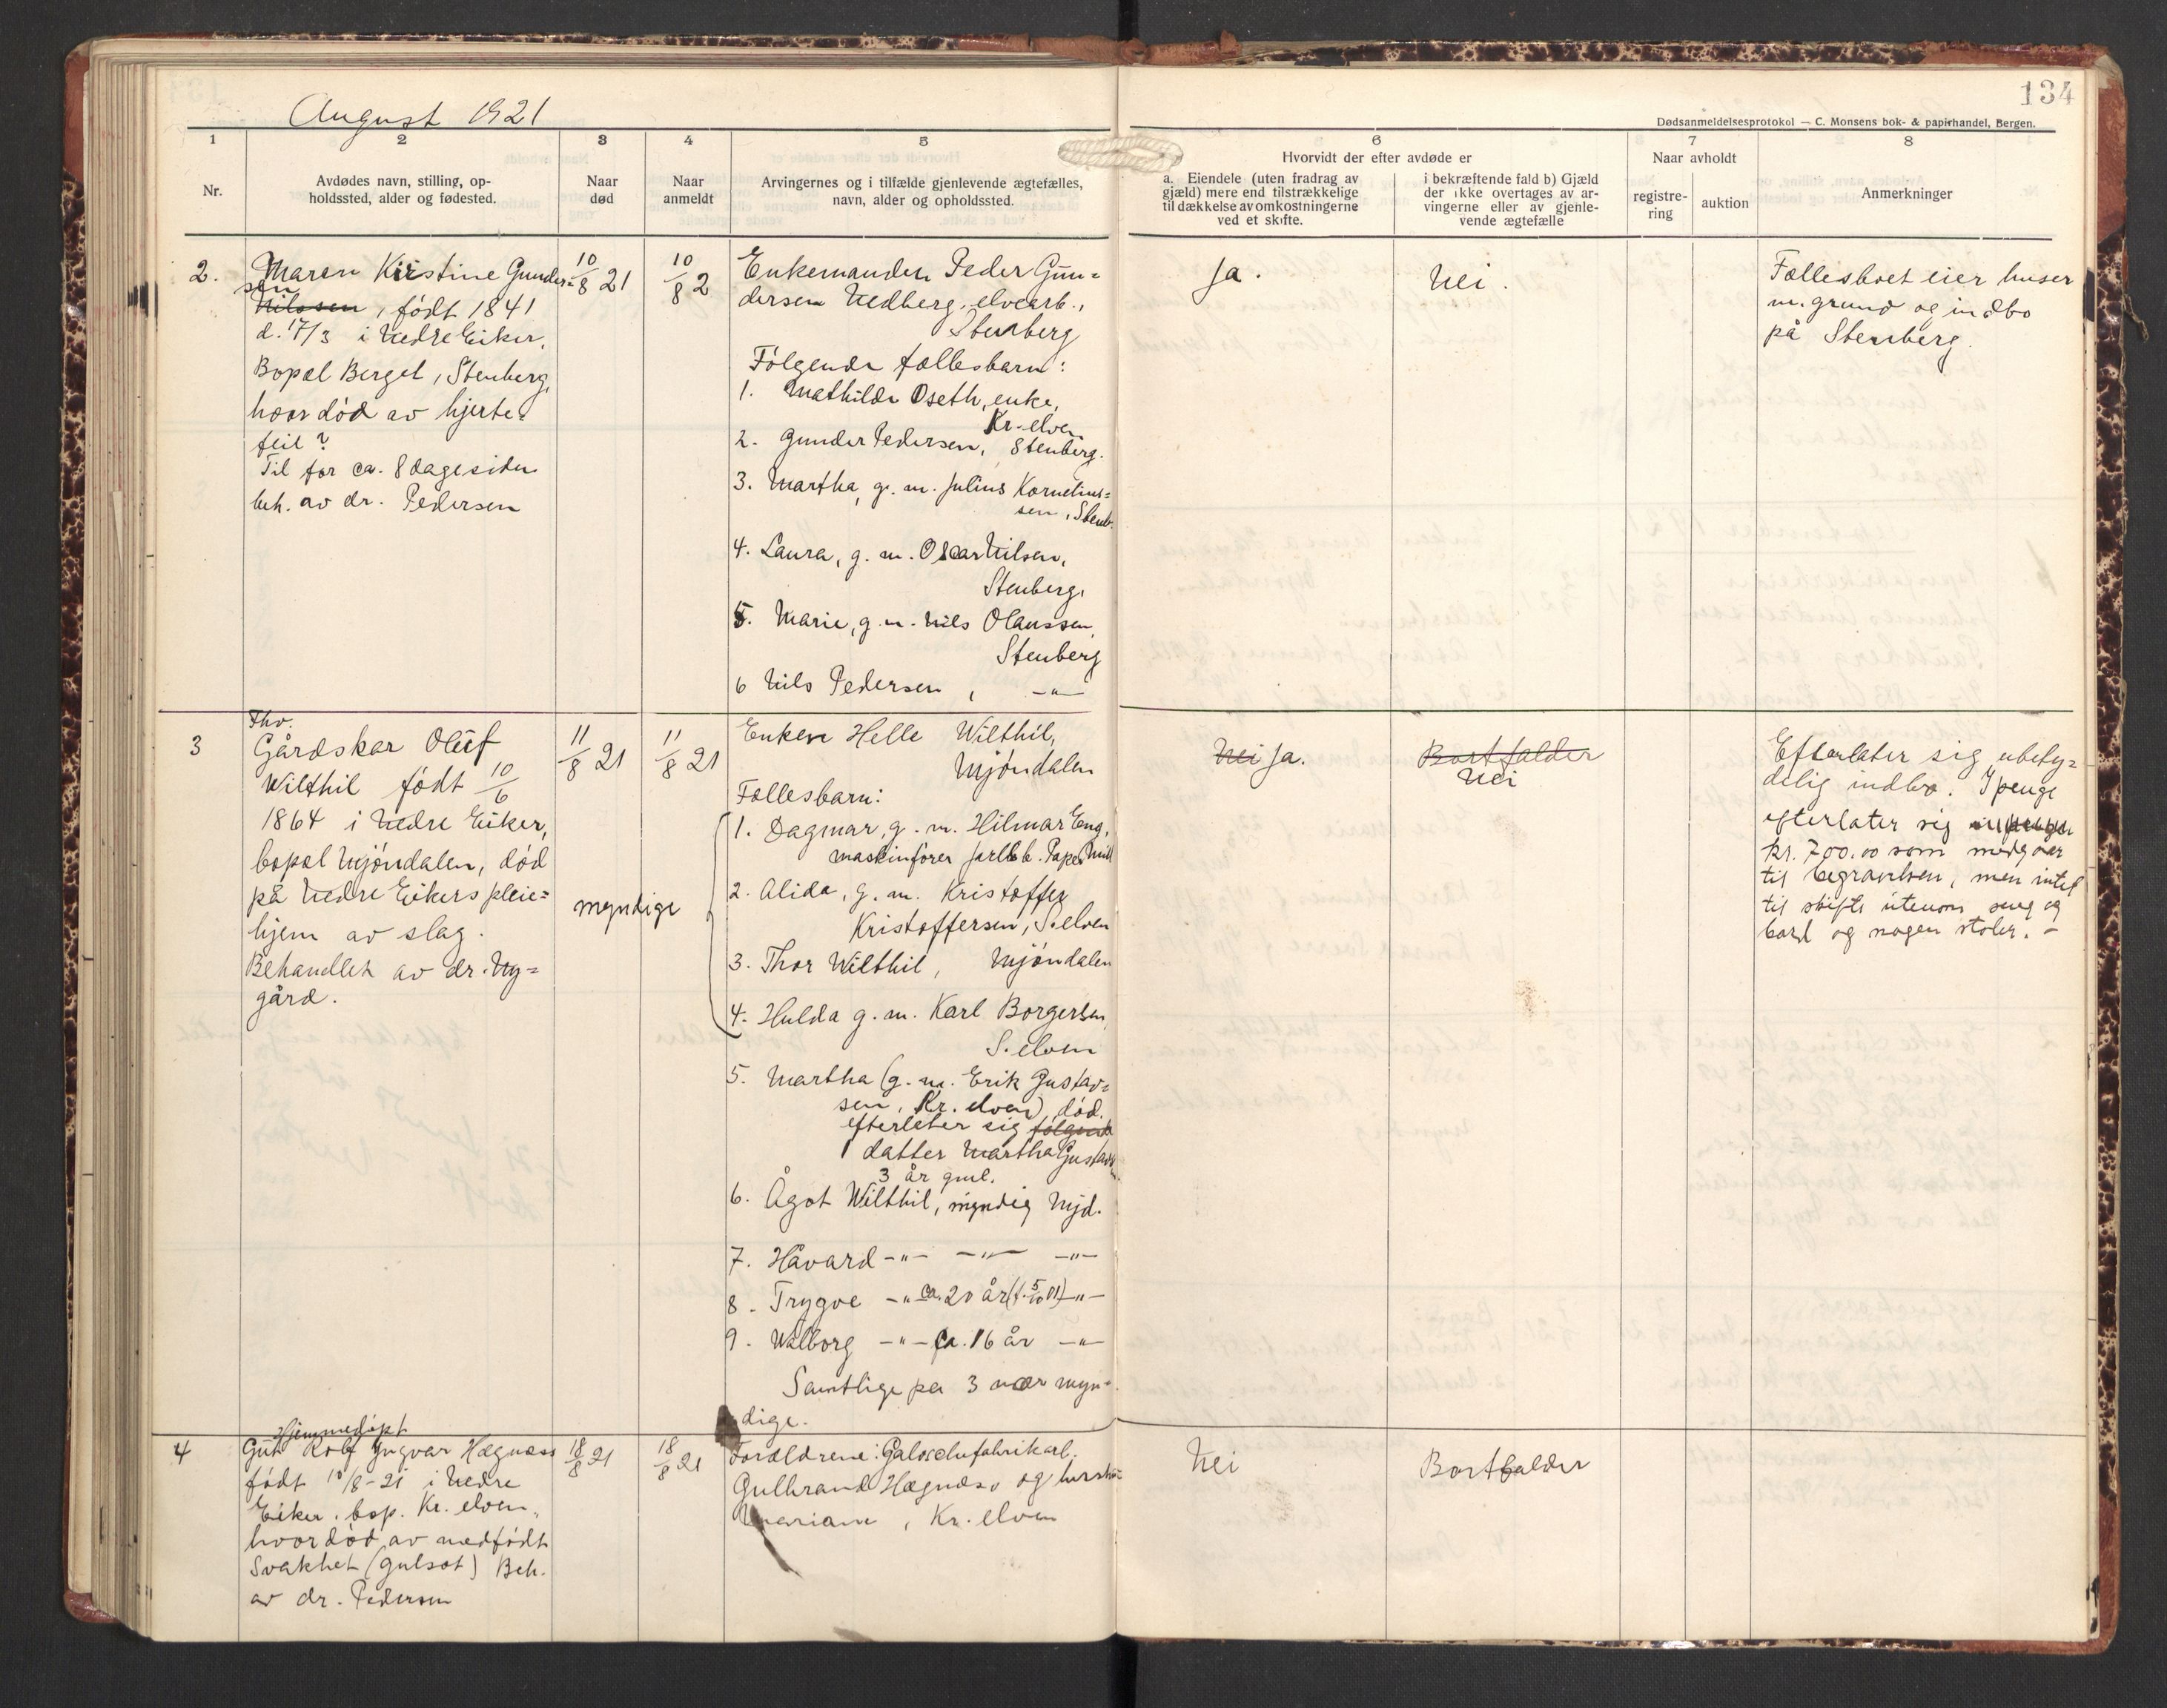 August 1921
134
Dødsanmeldelsesprotokol — C. Monsens bok- & papirhandel, Bergen.
1
2
3
4
5
6
7
8
Nr.
Avdødes navn, stilling, op-
holdssted, alder og fødested.
Naar
død
Naar
anmeldt
Arvingernes og i tilfælde gjenlevende ægtefælles,
navn, alder og opholdssted.
Hvorvidt der efter avdøde er
a. Eiendele (uten fradrag av
gjæld) mere end tilstrækkelige
til dækkelse av omkostningerne
ved et skifte.
i bekræftende fald b) Gjæld
der ikke overtages av ar-
vingerne eller av gjenle-
vende ægtefælle
Naar avholdt
registre-
ring
auktion
Anmerkninger
2.
Maren Kirstine Gunder-
sen
Nilssen, født 1841
d. 17/3 i Nedre Eiker,
Bopæl Berget, Stenberg,
hvor død av hjerte-
feil?
Til for ca. 8 dage siden
beh. av dr. Pedersen
10/8 21
10/8 2
Enkemanden Peder Gun-
dersen Nedberg, elvearb.,
Stenberg
Følgende fællesbarn:
1. Mathilde Oseth, enke,
Kr.elven
2. Gunder Pedersen, Stenberg.
3. Martha, g. m. Julius Kornelius-
sen, Stenb.
4. Laura, g. m. Oscar Nilsen,
Stenberg,
5. Marie, g. m. Nils Olaussen,
Stenberg
6 Nils Pedersen, -"-
Ja.
Nei.
Fællesboet eier huser
m. grund og indbo
på Stenberg.
3
Fhv.
Gårdskar Oluf
Wilthil født 10/6
1864 i Nedre Eiker,
bopæl Mjøndalen, død
på Nedre Eikers pleie-
hjem av slag.
Behandlet av dr. Ny-
gård.
11/8 21
11/8 21
myndige
Enken Helle Wilthil,
Mjøndalen
Fællesbarn:
1. Dagmar, g. m. Hilmar Eng,
maskinfører Paper Mill
2. Alida, g. m. Kristoffer
Kristoffersen, S.elven
3. Thor Wilthil, Mjøndalen
4. Hulda g. m. Karl Borgersen,
S.elven
5. Martha (g. m. Erik Gustav-
sen, Kr. elven), død.
efterlater sig følgende
datter Martha Gustavs
3 år gml.
6. Ågot Wilthil, myndig Mjd.
7. Håvard -"- -"- -"-
8. Trygve -"- ca. 20 år (f. 5/10 01) -"-
9. Walborg -"- ca. 16 år -"-
Samtlige på 3 nær myn-
dige.
Nei Ja.
Bortfalder
Nei
Efterlater sig ubety-
delig indbo. I penge
efterlater sig
kr. 700.00 som medgaar
til begravelsen, men intet
til skifte utenom seng og
bord og nogen stoler. -
4
Hjemmedøpt
Gut Rolf Yngvar Hægnæss
født 10/8-21 i Nedre
Eiker, bop. Kr. elven,
hvor død av medfødt
Svakhet (gulsot) Beh.
av dr. Pedersen
18/8 21
18/8 21
Forældrene: Galoschefabrikarb.
Gulbrand Hægnæs og hustru
Mariane, Kr. elven
Nei
Bortfalder